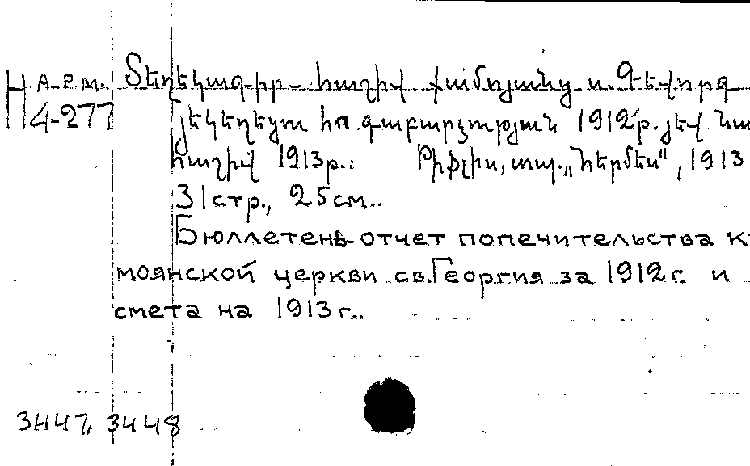 А-Р.м. Տեղեկագիր-հաշիվ քամոյանց ս. Գևորգ
H 4-277 եկեղեցու հոգաբարձության 1912թ. յեվ նա
հաշիվ 1913թ.: Թիֆլիս, տպ. „Հերմես“, 1913
31стр., 25см..
Бюллетень-отчет попечительства К
моянской церкви св.Георгия за 1912г. и
смета на 1913г..
3447, 3448